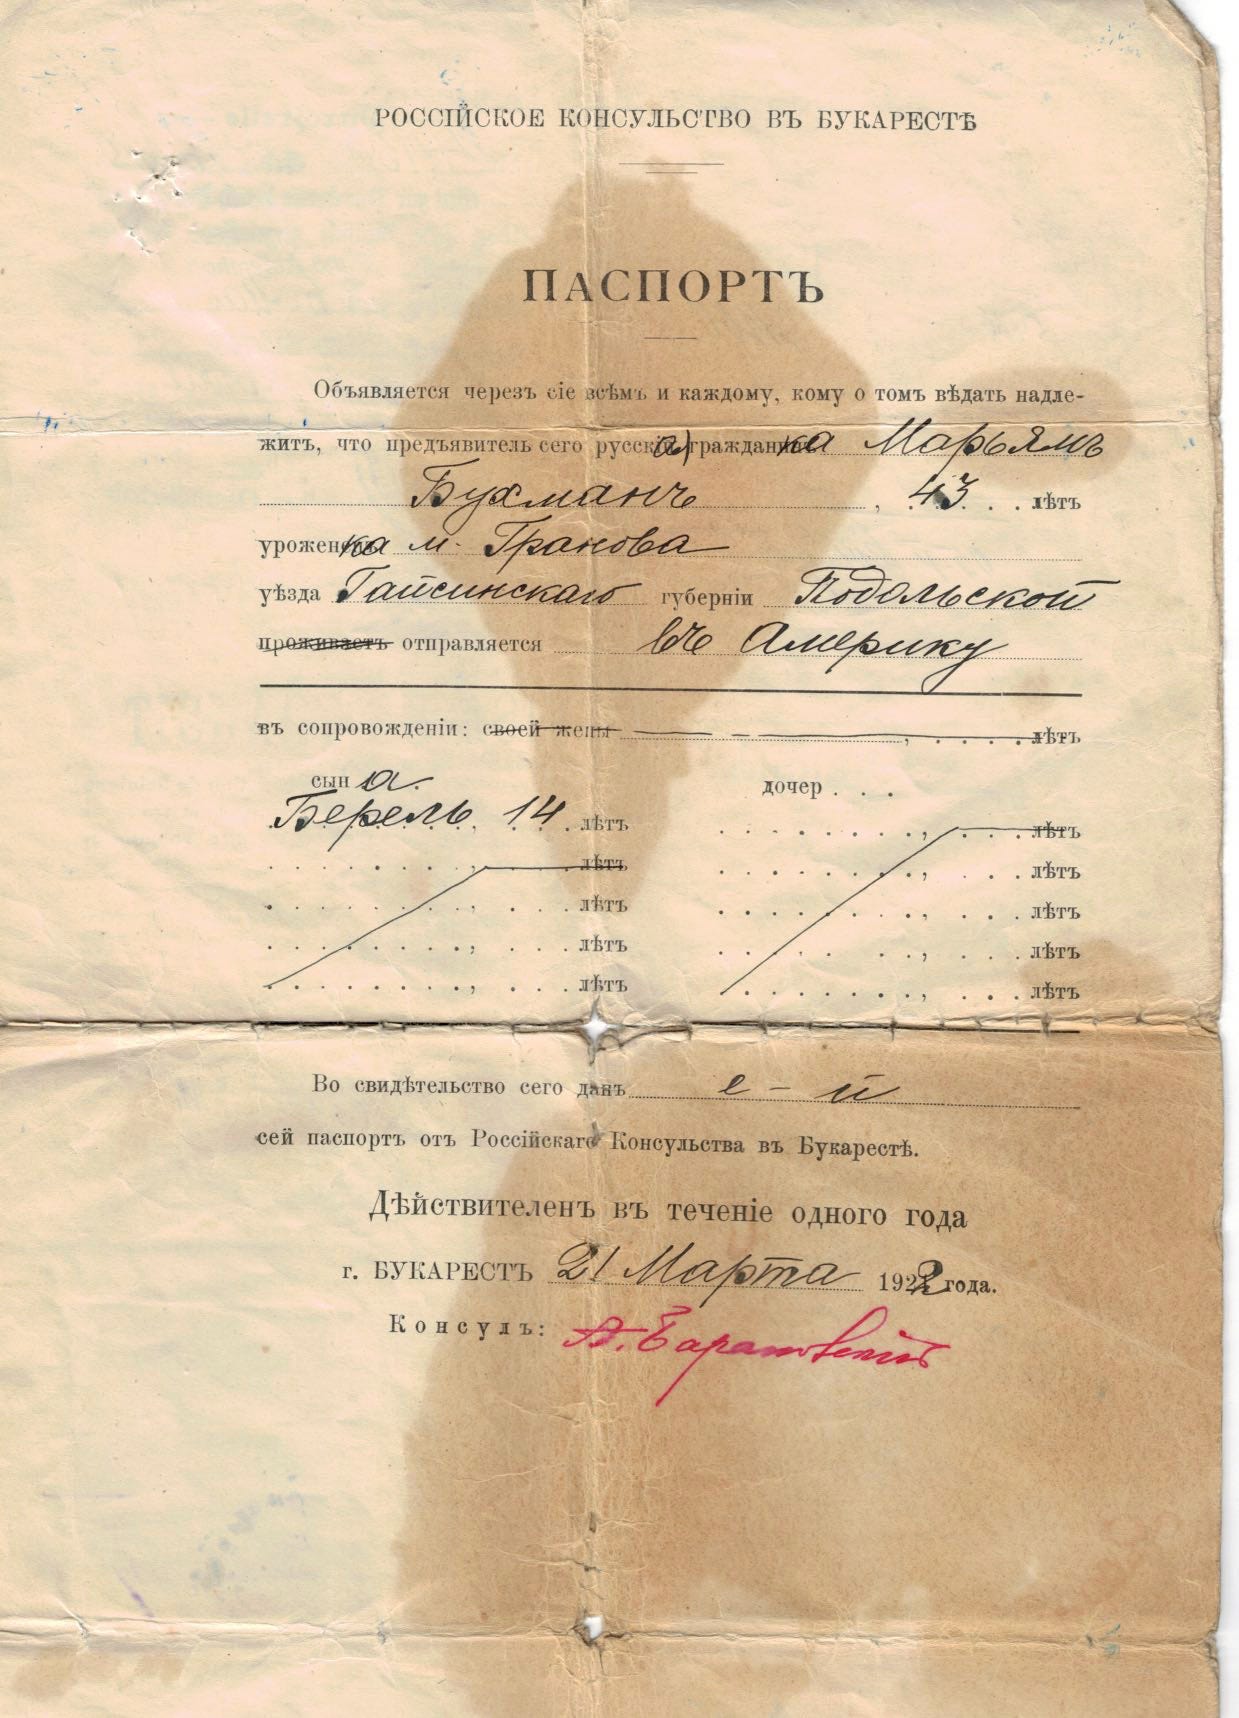 РОССІЙСКОЕ КОНСУЛЬСТВО ВЪ БУКАРЕСТѢ
ПАСПОРТЪ
Объявляется черезъ сіе всѣмъ и каждому, кому о томъ вѣдать надле-
житъ, что предъявитель сего русска(я) гражданка Марьямъ
Бухманъ, 43 лѣтъ
уроженка м. Гранова
уѣзда Гайсинскаго губерніи Подольской
проживаетъ отправляется въ Америку
въ сопровожденіи: своей жены , . . . . лѣтъ
сына. дочер . . .
Берель, 14 лѣтъ . . . . . . . ., . . . лѣтъ
. . . . . . . ., . . . лѣтъ . . . . . . . ., . . . лѣтъ
. . . . . . . ., . . . лѣтъ . . . . . . . ., . . . лѣтъ
. . . . . . . ., . . . лѣтъ . . . . . . . ., . . . лѣтъ
. . . . . . . ., . . . лѣтъ . . . . . . . ., . . . лѣтъ
Во свидѣтельство сего данъ е - й
сей паспортъ отъ Россійскаго Консульства въ Букарестѣ.
Дѣйствителенъ въ теченіе одного года
г. БУКАРЕСТЪ 21 Марта 1922 года.
Консулъ: